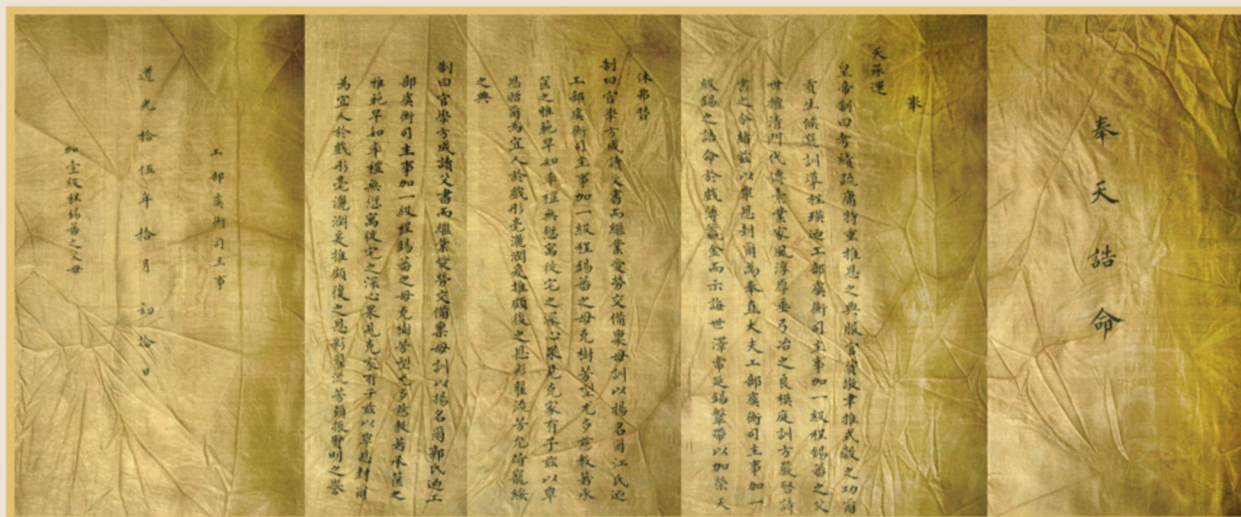 奉天誥命
奉
天承運
皇帝制曰考績疏庸特重推恩之典服官資敬聿推式穀之功爾
貢生候選訓導程瑛迺工部虞衡司主事加一級程錫蕃之父
世擅清門代傳素業家風淳厚垂弓冶之良模庭訓方嚴啓詩
書之令緒兹以覃恩封爾為奉直大夫工部虞衡司主事加一
級錫之誥命於戲薄籯金而示誨世澤常延錫鞶帶以加榮天
休弗替
制曰官學方成讀父書而繼業爱勞交備稟母訓以揚名爾江氏迺
工部虞衡司主事加一級程錫蕃之母克樹芳型尤多慈教蓍承
筐之惟範早如率禮無愆寓徙宅之深心果見克家有子兹以覃
恩貤爾為宜人於戲彤毫灑潤爰推顧復之恩彩翟流芳允荷寵綏
之典
制曰官學方成讀父書而繼業爱勞交備稟母訓以揚名爾鄭氏迺工
部虞衡司主事加一級程錫蕃之母克樹芳型尤多慈教蓍承筐之
惟範早如率禮無愆寓徙宅之深心果見克家有子兹以覃恩封爾
為宜人於戲彤毫灑潤爰推顧復之恩彩翟流芳頻振賢明之譽
工部虞衡司主事
道光拾伍年拾月初拾日
加壹級程錫蕃之父母